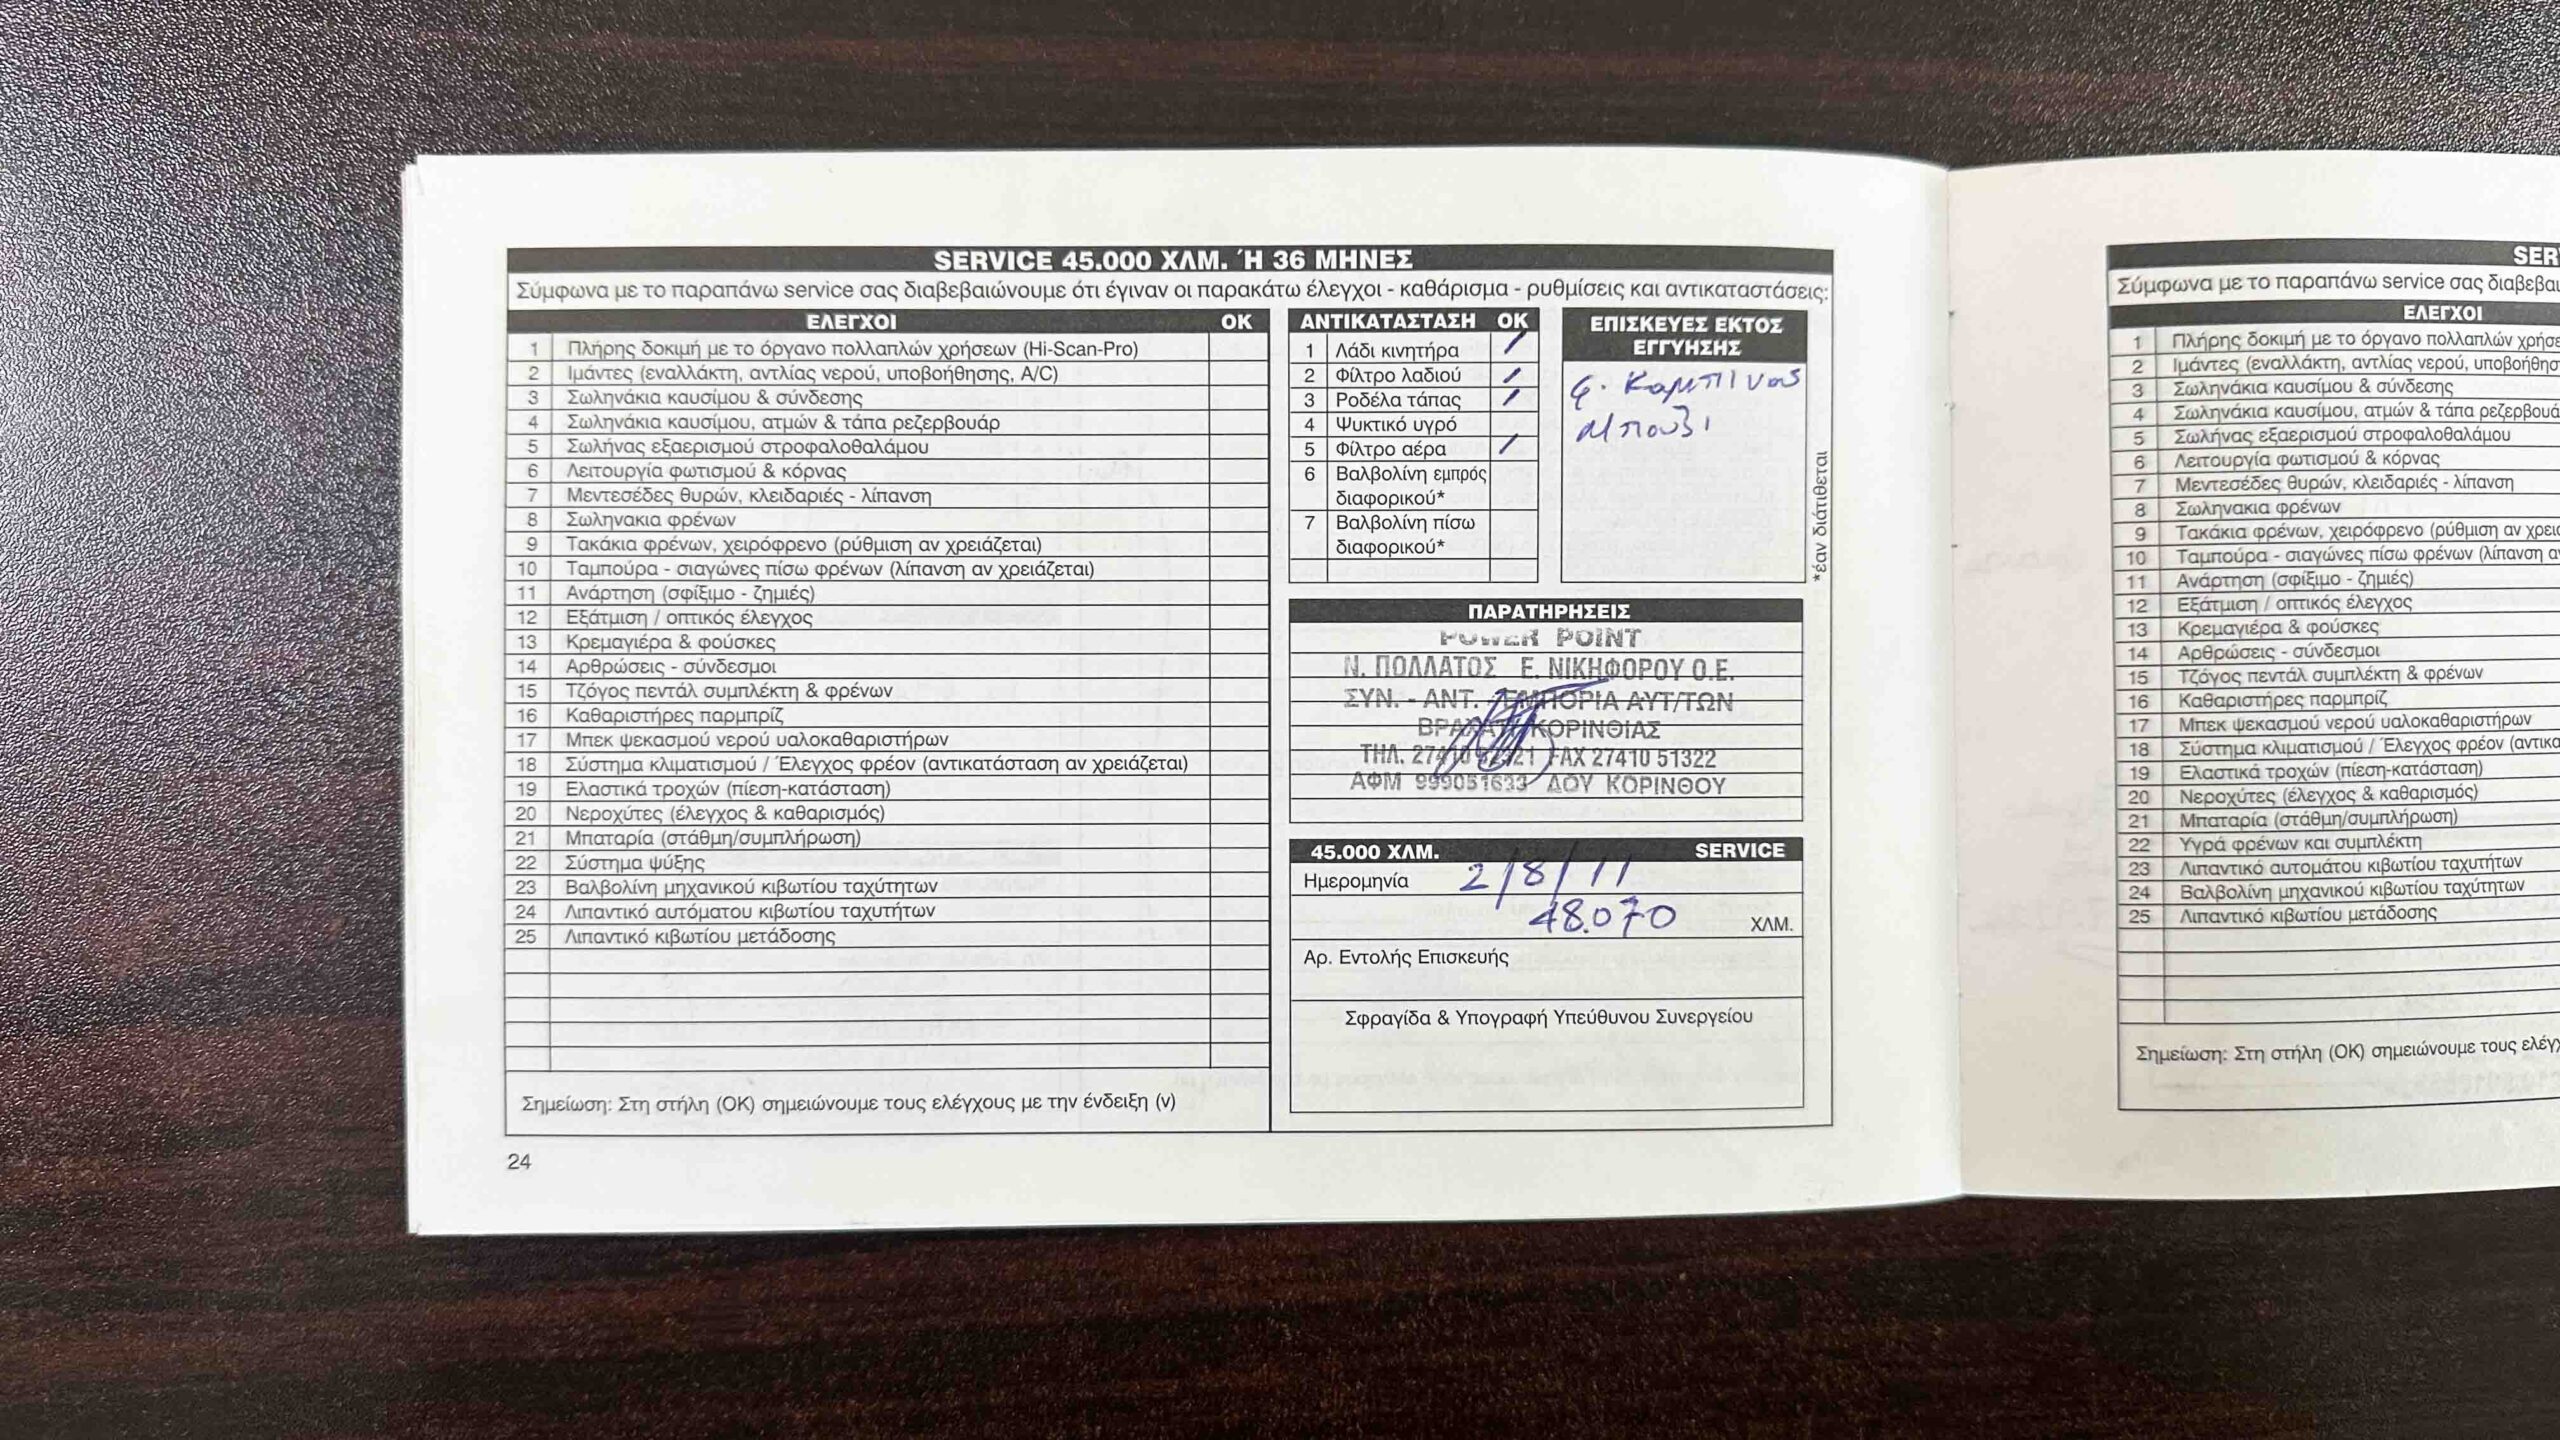 SERVICE 45.000 ΧΛΜ. Ή 36 ΜΗΝΕΣ
Σύμφωνα με το παραπάνω service σας διαβεβαιώνουμε ότι έγιναν οι παρακάτω έλεγχοι - καθάρισμα - ρυθμίσεις και αντικαταστάσεις:
ΕΛΕΓΧΟΙ OK
1 Πλήρης δοκιμή με το όργανο πολλαπλών χρήσεων (Hi-Scan-Pro)
2 Ιμάντες (εναλλάκτη, αντλίας νερού, υποβοήθησης, A/C)
3 Σωληνάκια καυσίμου & σύνδεσης
4 Σωληνάκια καυσίμου, ατμών & τάπα ρεζερβουάρ
5 Σωλήνας εξαερισμού στροφαλοθαλάμου
6 Λειτουργία φωτισμού & κόρνας
7 Μεντεσέδες θυρών, κλειδαριές - λίπανση
8 Σωληνακια φρένων
9 Τακάκια φρένων, χειρόφρενο (ρύθμιση αν χρειάζεται)
10 Ταμπούρα - σιαγώνες πίσω φρένων (λίπανση αν χρειάζεται)
11 Ανάρτηση (σφίξιμο - ζημιές)
12 Εξάτμιση / οπτικός έλεγχος
13 Κρεμαγιέρα & φούσκες
14 Αρθρώσεις - σύνδεσμοι
15 Τζόγος πεντάλ συμπλέκτη & φρένων
16 Καθαριστήρες παρμπρίζ
17 Μπεκ ψεκασμού νερού υαλοκαθαριστήρων
18 Σύστημα κλιματισμού / Έλεγχος φρέον (αντικατάσταση αν χρειάζεται)
19 Ελαστικά τροχών (πίεση-κατάσταση)
20 Νεροχύτες (έλεγχος & καθαρισμός)
21 Μπαταρία (στάθμη/συμπλήρωση)
22 Σύστημα ψύξης
23 Βαλβολίνη μηχανικού κιβωτίου ταχύτητων
24 Λιπαντικό αυτόματου κιβωτίου ταχυτήτων
25 Λιπαντικό κιβωτίου μετάδοσης
Σημείωση: Στη στήλη (OK) σημειώνουμε τους ελέγχους με την ένδειξη (v)
24
ΑΝΤΙΚΑΤΑΣΤΑΣΗ OK
1 Λάδι κινητήρα
2 Φίλτρο λαδιού
3 Ροδέλα τάπας
4 Ψυκτικό υγρό
5 Φίλτρο αέρα
6 Βαλβολίνη εμπρός
διαφορικού*
7 Βαλβολίνη πίσω
διαφορικού*
ΕΠΙΣΚΕΥΕΣ ΕΚΤΟΣ
ΕΓΓΥΗΣΗΣ
φ. Καμπίνας
Μπουζι
*έαν διάτιθεται
ΠΑΡΑΤΗΡΗΣΕΙΣ
POWER POINT
Ν. ΠΟΛΛΑΤΟΣ Ε. ΝΙΚΗΦΟΡΟΥ Ο.Ε.
ΣΥΝ. - ΑΝΤ. - ΕΜΠΟΡΙΑ ΑΥΤ/ΤΩΝ
ΒΡΑΧΑΤΙ ΚΟΡΙΝΘΙΑΣ
ΤΗΛ. FAX 27410 51322
ΑΦΜ 999051633 ΔΟΥ ΚΟΡΙΝΘΟΥ
45.000 ΧΛΜ. SERVICE
Ημερομηνία 2/8/11
48.070 ΧΛΜ.
Αρ. Εντολής Επισκευής
Σφραγίδα & Υπογραφή Υπεύθυνου Συνεργείου
SER
Σύμφωνα με το παραπάνω service σας διαβεβαι
ΕΛΕΓΧΟΙ
1 Πλήρης δοκιμή με το όργανο πολλαπλών χρήσε
2 Ιμάντες (εναλλάκτη, αντλίας νερού, υποβοήθησ
3 Σωληνάκια καυσίμου & σύνδεσης
4 Σωληνάκια καυσίμου, ατμών & τάπα ρεζερβουά
5 Σωλήνας εξαερισμού στροφαλοθαλάμου
6 Λειτουργία φωτισμού & κόρνας
7 Μεντεσέδες θυρών, κλειδαριές - λίπανση
8 Σωληνακια φρένων
9 Τακάκια φρένων, χειρόφρενο (ρύθμιση αν χρειά
10 Ταμπούρα - σιαγώνες πίσω φρένων (λίπανση α
11 Ανάρτηση (σφίξιμο - ζημιές)
12 Εξάτμιση / οπτικός έλεγχος
13 Κρεμαγιέρα & φούσκες
14 Αρθρώσεις - σύνδεσμοι
15 Τζόγος πεντάλ συμπλέκτη & φρένων
16 Καθαριστήρες παρμπρίζ
17 Μπεκ ψεκασμού νερού υαλοκαθαριστήρων
18 Σύστημα κλιματισμού / Έλεγχος φρέον (αντικα
19 Ελαστικά τροχών (πίεση-κατάσταση)
20 Νεροχύτες (έλεγχος & καθαρισμός)
21 Μπαταρία (στάθμη/συμπλήρωση)
22 Υγρά φρένων και συμπλέκτη
23 Λιπαντικό αυτομάτου κιβωτίου ταχυτήτων
24 Βαλβολίνη μηχανικού κιβωτίου ταχύτητων
25 Λιπαντικό κιβωτίου μετάδοσης
Σημείωση: Στη στήλη (OK) σημειώνουμε τους ελέγχ